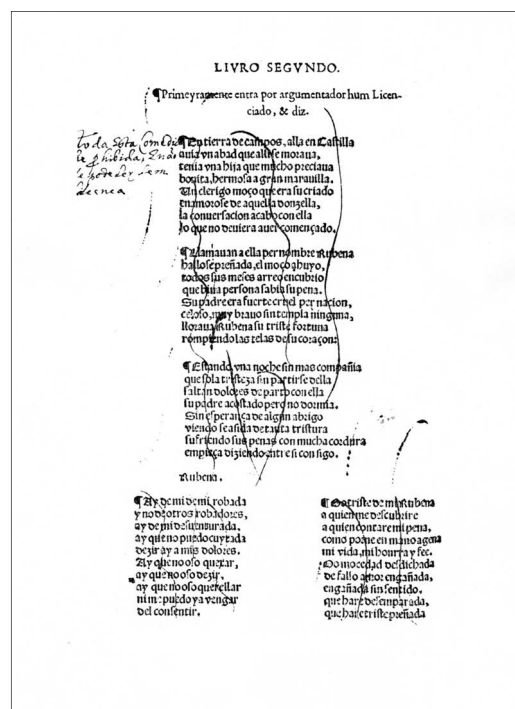 LIVRO SEGVNDO.
¶Primeyramente entra por argumentador hum Licen-
ciado, & diz.
toda esta comedia
¶En tierra de campos, alla en Castilla
auia vn abad que alli se moraua,
tenia vna hija que mucho preciaua
bonita, hermosa a gran marauilla.
Un clerigo moço que era su criado
enamorose de aquella donzella,
la conuersacion acabo con ella
lo que no deuiera auer començado.
¶Llamauan a ella per nombre Rubena
hallose preñada, el moço ahuyo,
todos sus meses arreo encubrio
que biua persona sabia su pena.
Su padre era fuerte cruel per nacion,
celoso, muy brauo sin templa ninguna,
lloraua Rubena su triste fortuna
rompiendo las telas de su coraçon:
¶Estando vna noche sin mas compañia
que sola tristeza sin partirse della
saltan dolores de parto con ella
su padre acostado pero no dormia.
Sin esperança de algun abrigo
viendo se asida de tanta tristura
sufriendo sus penas con mucha cordura
empieça diziendo entre si consigo.
Rubena.
¶Ay de mi de mi robada
y no de otros robadores,
ay de mi desuenturada,
ay que no puedo cuytada
dezir ay a mis dolores.
Ay que no oso quexar,
ay que no oso dezir,
ay que no oso querellar
ni me puedo ya vengar
del consentir.
¶O triste de mi Rubena
a quien me descubrire
a quien contare mi pena,
como porne en mano agena
mi vida, mi honrra y fee.
O mocedad desdichada
de falso amor engañada,
engañada sin sentido.
que hare desemparada,
que hare triste preñada